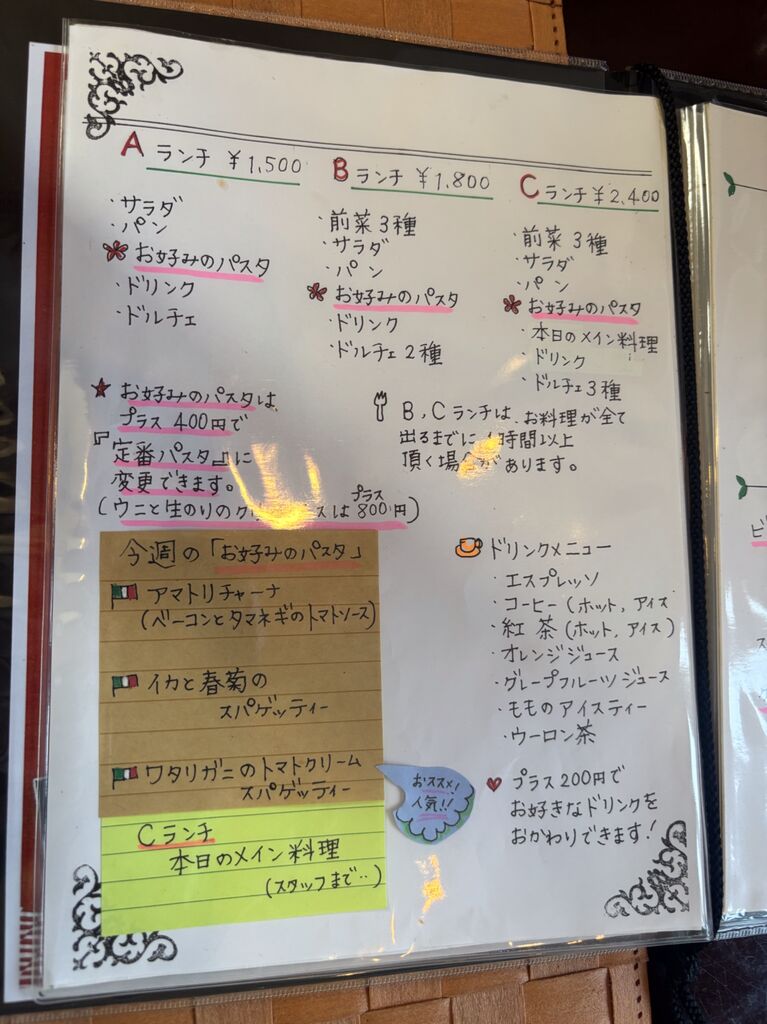 A ランチ ¥1,500
・サラダ
・パン
お好みのパスタ
・ドリンク
・ドルチェ
B ランチ ¥1,800
・前菜3種
・サラダ
・パン
お好みのパスタ
・ドリンク
・ドルチェ2種
C ランチ ¥2,400
・前菜3種
・サラダ
・パン
お好みのパスタ
・本日のメイン料理
・ドリンク
・ドルチェ3種
★お好みのパスタは、
プラス400円で
『定番パスタ』に
変更できます。
(ウニと生のりのク スはプラス800円)
B,Cランチは、お料理が全て
出るまでに1時間以上
頂く場合があります。
今週の「お好みのパスタ」
アマトリチャーナ
(ベーコンとタマネギのトマトソース)
イカと春菊の
スパゲッティー
ワタリガニのトマトクリーム
スパゲッティー
おススメ!
人気!!
Cランチ
本日のメイン料理
(スタッフまで‥)
ドリンクメニュー
・エスプレッソ
・コーヒー(ホット,アイス
・紅茶(ホット,アイス)
・オレンジジュース
・グレープフルーツジュース
・ももの アイスティー
・ウーロン茶
♥プラス200円で
お好きなドリンクを
おかわりできます!